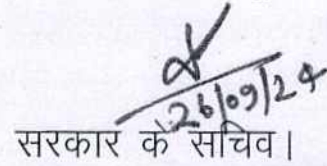 26/09/24
सरकार के सचिव।